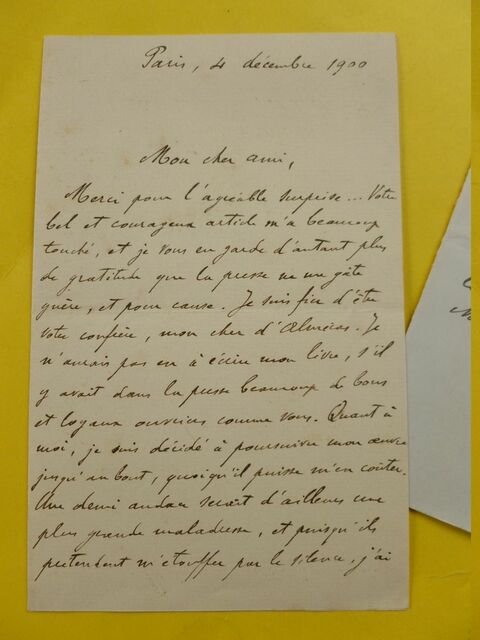 Paris, 4 décembre 1900
Mon cher ami,
Merci pour l'agréable surprise... Votre
bel et courageux article m'a beaucoup
touché, et je vous en garde d'autant plus
de gratitude que la presse ne me gâte
guère, et pour cause. Je suis fier d'être
votre confrère, mon cher d'Alméras. Je
n'aurais pas eu à écrire mon livre, s'il
y avait dans la presse beaucoup de bons
et loyaux ouvriers comme vous. Quant à
moi, je suis décidé à poursuivre mon œuvre
jusqu'au bout, quoiqu'il puisse m'en coûter.
Une demi audace serait d'ailleurs une
plus grande maladresse, et puisqu'ils
prétendent m'étouffer par le silence, j'ai